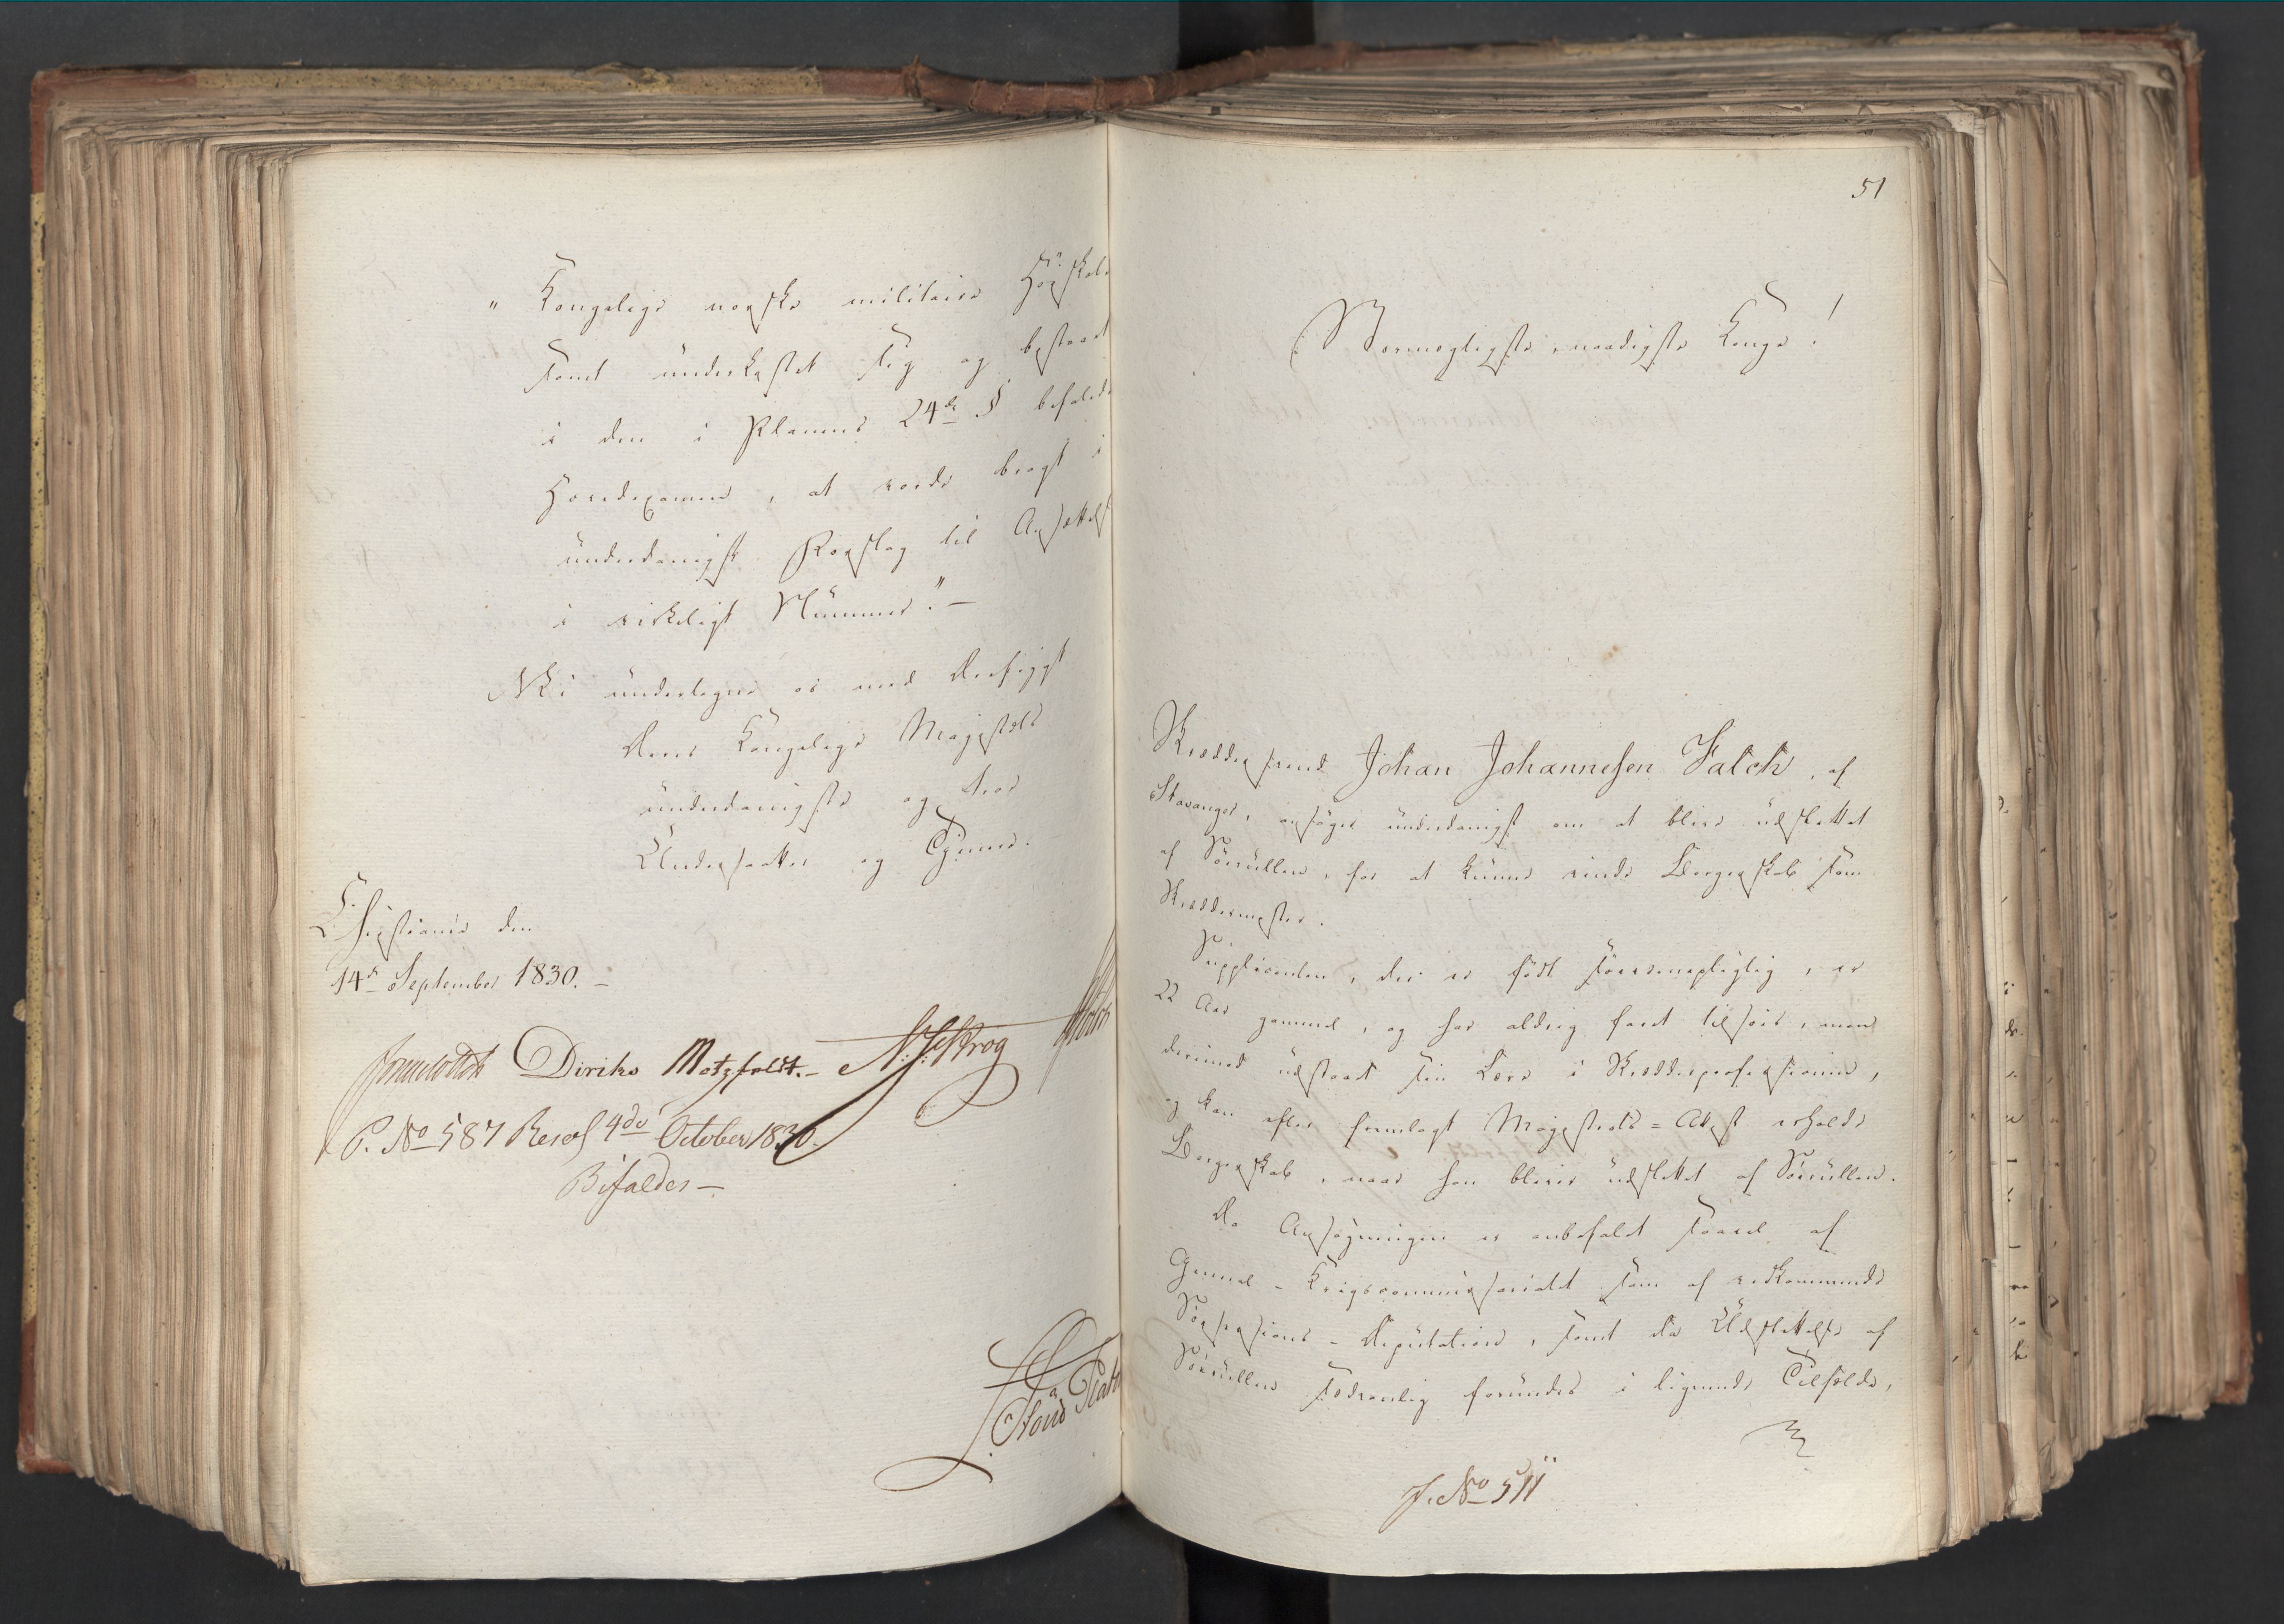 " Kongelige norske militaire Høyskole
samt underkastet sig og bestaaet
i den i Planens 24de § befalede
Hovedexamen, at vorde bragt i
underdanigst Forslag til Ansættelse
i virkeligt Nummer." —
Vi undertegne os med Devotion
Deres Kongelige Majestæts
underdanigste og troe
Undersaatter og Tjenere.
Christiania den
14de September 1830. —
Diriks Motzfeldt. —
P. No 587 Resol 4do October 1830.
Bifaldes —
51
Stormægtigste, naadigste Konge!
Skræddersvend Johan Johannesen Falch, af
Stavanger, ansøger underdanigst om at blive udslettet
af Sørullen, for at kunne vinde Borgerskab som
Skræddermester.
Supplicanten, der er født søeværnepligtig, er
22 Aar gammel, og har aldrig faret tilsøes, men
derimod udstaaet sin Lære i Skrædderprofessionen,
og kan efter fremlagt Magistrats = Attest erholde
Borgerskab, naar han bliver udslettet af Sørullen.
Da Ansøgningen er anbefalet saavel af
General - Krigscommissariatet som af vedkommende
Søsessions - Deputation, samt da Udslettelse af
Sørullen sædvanlig forundes i lignende Tilfælde,
J. No 511